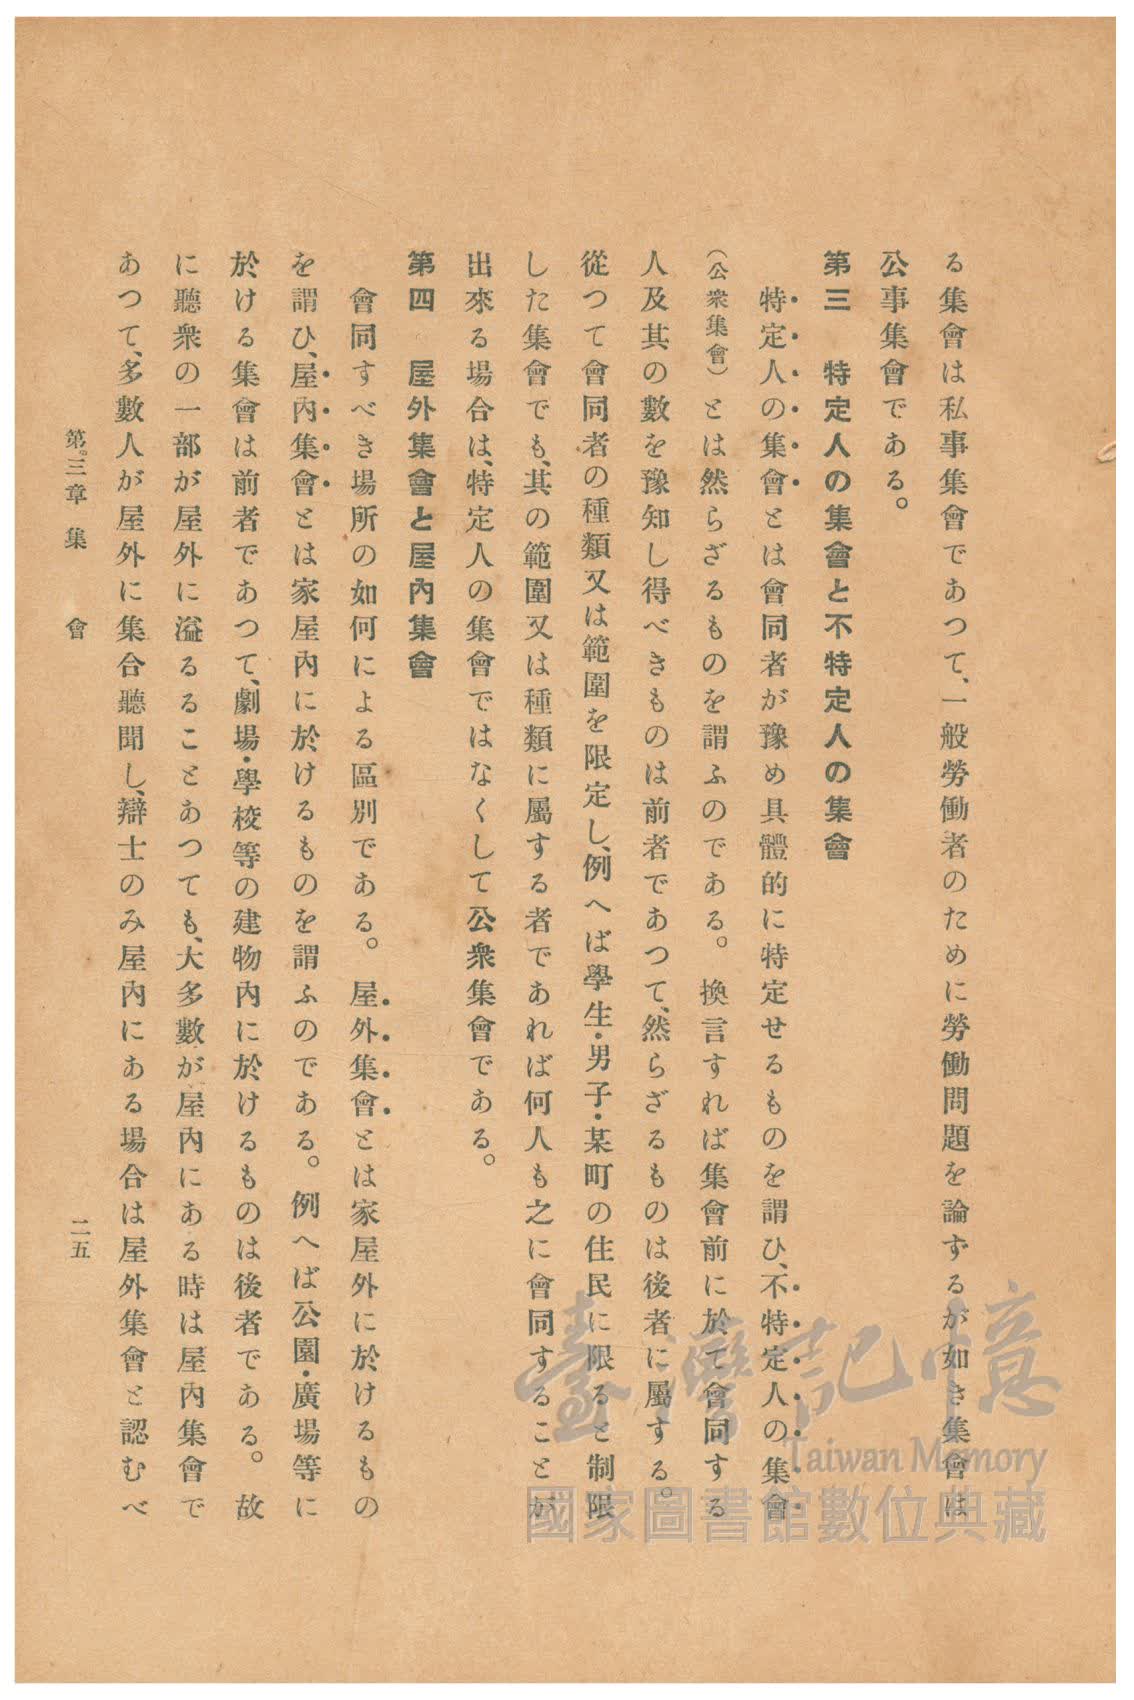 る集會は私事集會であつて、一般勞働者のために勞働問題を論ずるが如き集會は
公事集會である。
第三　特定人の集會と不特定人の集會
特定人の集會とは會同者が豫め具體的に特定せるものを謂ひ、不特定人の集會
（公衆集會）とは然らざるものを謂ふのである。換言すれば集會前に於て會同する
人及其の數を豫知し得べきものは前者であつて、然らざるものは後者に屬する。
從つて會同者の種類又は範圍を限定し、例へば學生・男子・某町の住民に限ると制限
した集會でも、其の範圍又は種類に屬する者であれば何人も之に會同することが
出來る場合は、特定人の集會ではなくして公衆集會である。
第四　屋外集會と屋內集會
會同すべき場所の如何による區別である。屋外集會とは家屋外に於けるもの
を謂ひ、屋內集會とは家屋內に於けるものを謂ふのである。例へば公園・廣場等に
於ける集會は前者であつて、劇場・學校等の建物內に於けるものは後者である。故
に聽衆の一部が屋外に溢るることあつても、大多數が屋內にある時は屋內集會で
あつて、多數人が屋外に集合聽聞し、辯士のみ屋內にある場合は屋外集會と認むべ
第三章　集　會
二五
臺灣記憶
Taiwan Memory
國家圖書館數位典藏